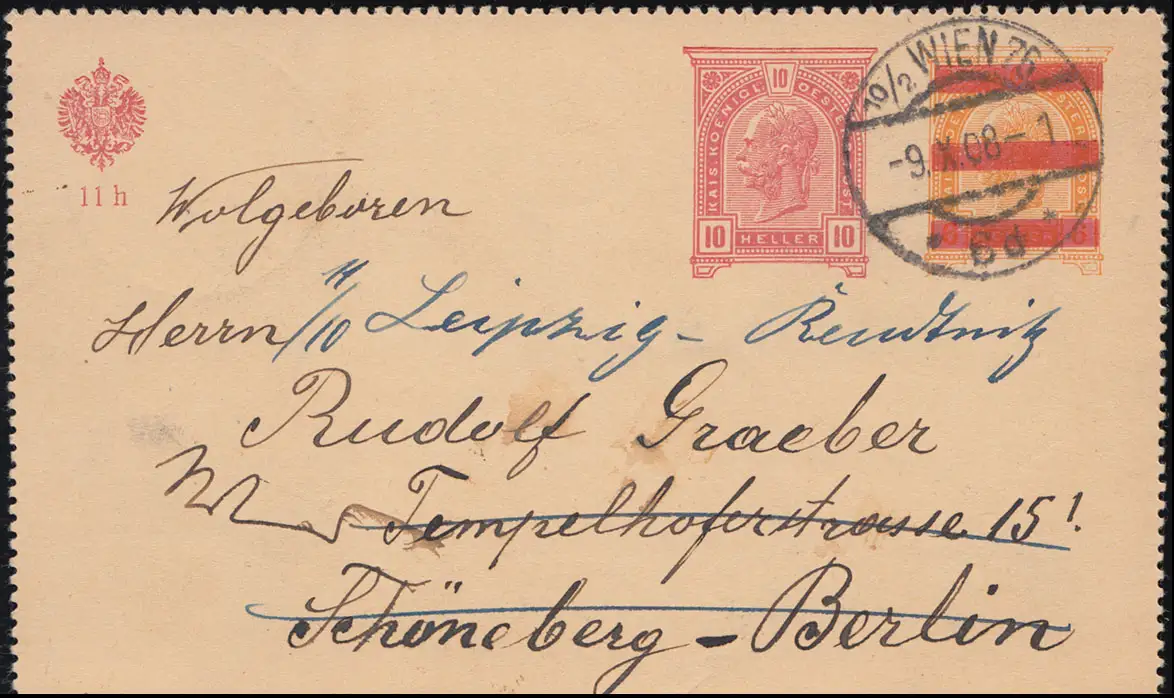 10/2 WIEN 76
-9.X.08-1
* 6d *
10
KAIS. KOENIGL. OESTERR. POST
10 HELLER 10
6 6
11 h
Wolgeboren
Herrn
Leipzig - Reudtnitz
Rudolf Graeber
Tempelhoferstrasse 15!
Schöneberg - Berlin